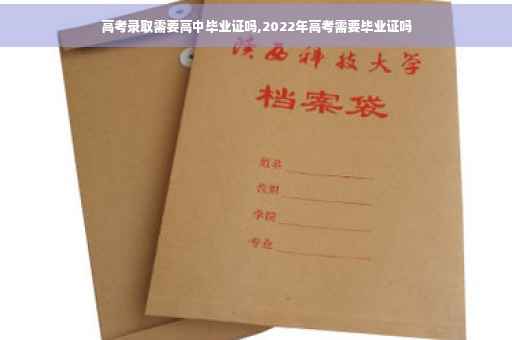 高考录取需要高中毕业证吗,2022年高考需要毕业证吗
陕西科技大学
档案袋
姓名
教职
学院
专业